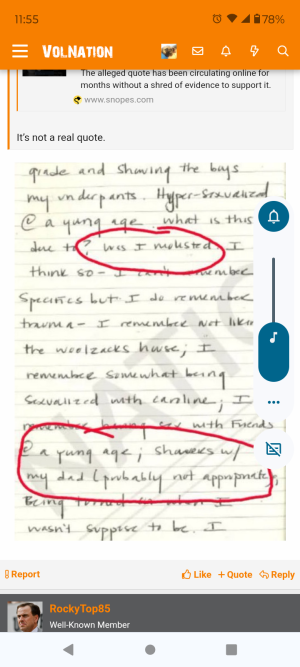 11:55
78%
VOLNATION
The alleged quote has been circulating online for
months without a shred of evidence to support it.
www.snopes.com
It's not a real quote.
grade and showing the boys
my underpants. Hyper-sexualized
@ a young age. what is this
due to? Was I molested. I
think so - I can't remember
specifics but I do remember
trauma - I remember not liking
the woolzacks house; I
remember somewhat being
sexualized with caroline; I
remember being sex with Friends
@ a young age; showers w/
my dad (probably not appropriate);
Being turned on when I
wasn't suppose to be. I
Report
Like + Quote Reply
RockyTop85
Well-Known Member